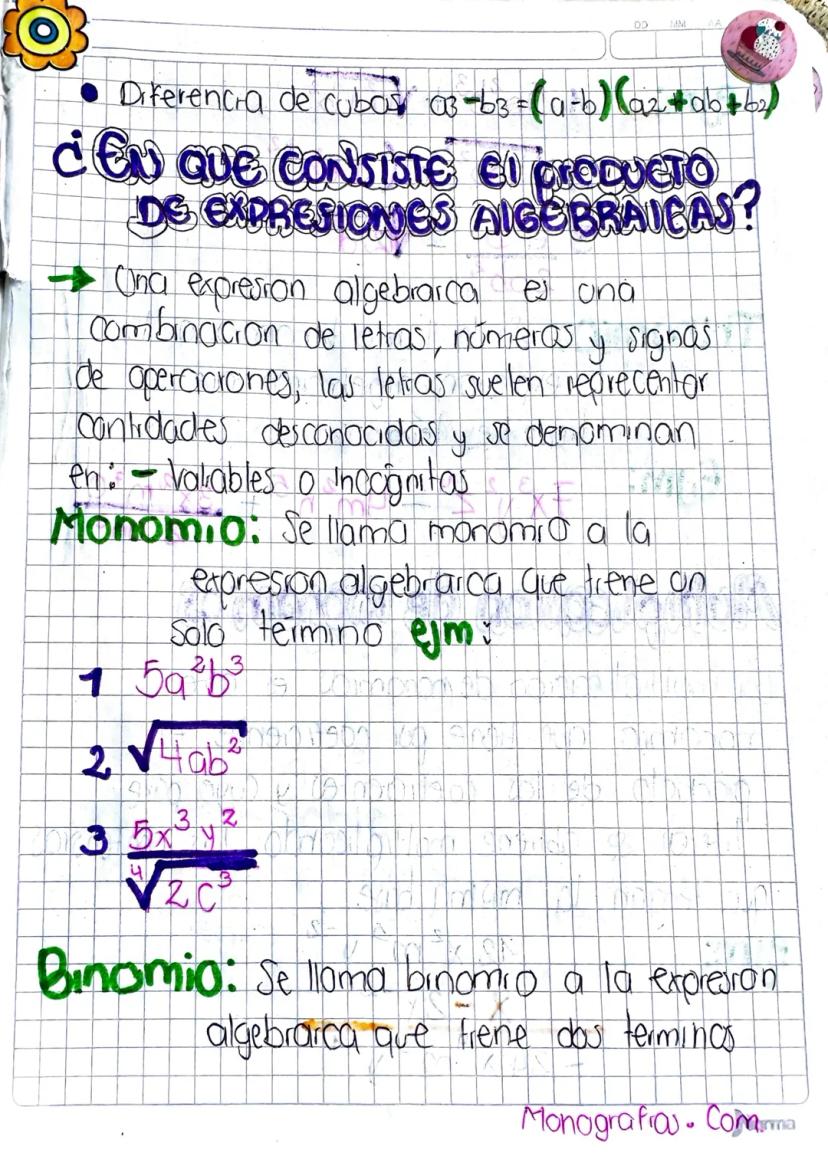 DD MM AA
• Diferencia de cubos a3-b3=(a-b)(a2+ab+b2)
¿EN QUE CONSISTE El PRODUCTO
DE EXPRESIONES AlGEBRAICAS?
→ Una expresion algebraica es una
combinacion de letras, números y signos
de operaciones, las letras suelen reprecentar
cantidades desconocidas y se denominan
en: - Variables o incógnitas
Monomio: Se llama monomio a la
expresion algebraica que tiene un
solo término ejm:
1 5a²b³
2 √4ab²
3 5x³y²
⁴√2c³
Binomio: Se llama binomio a la expresion
algebraica que tiene dos terminos
Monografias.Com
norma